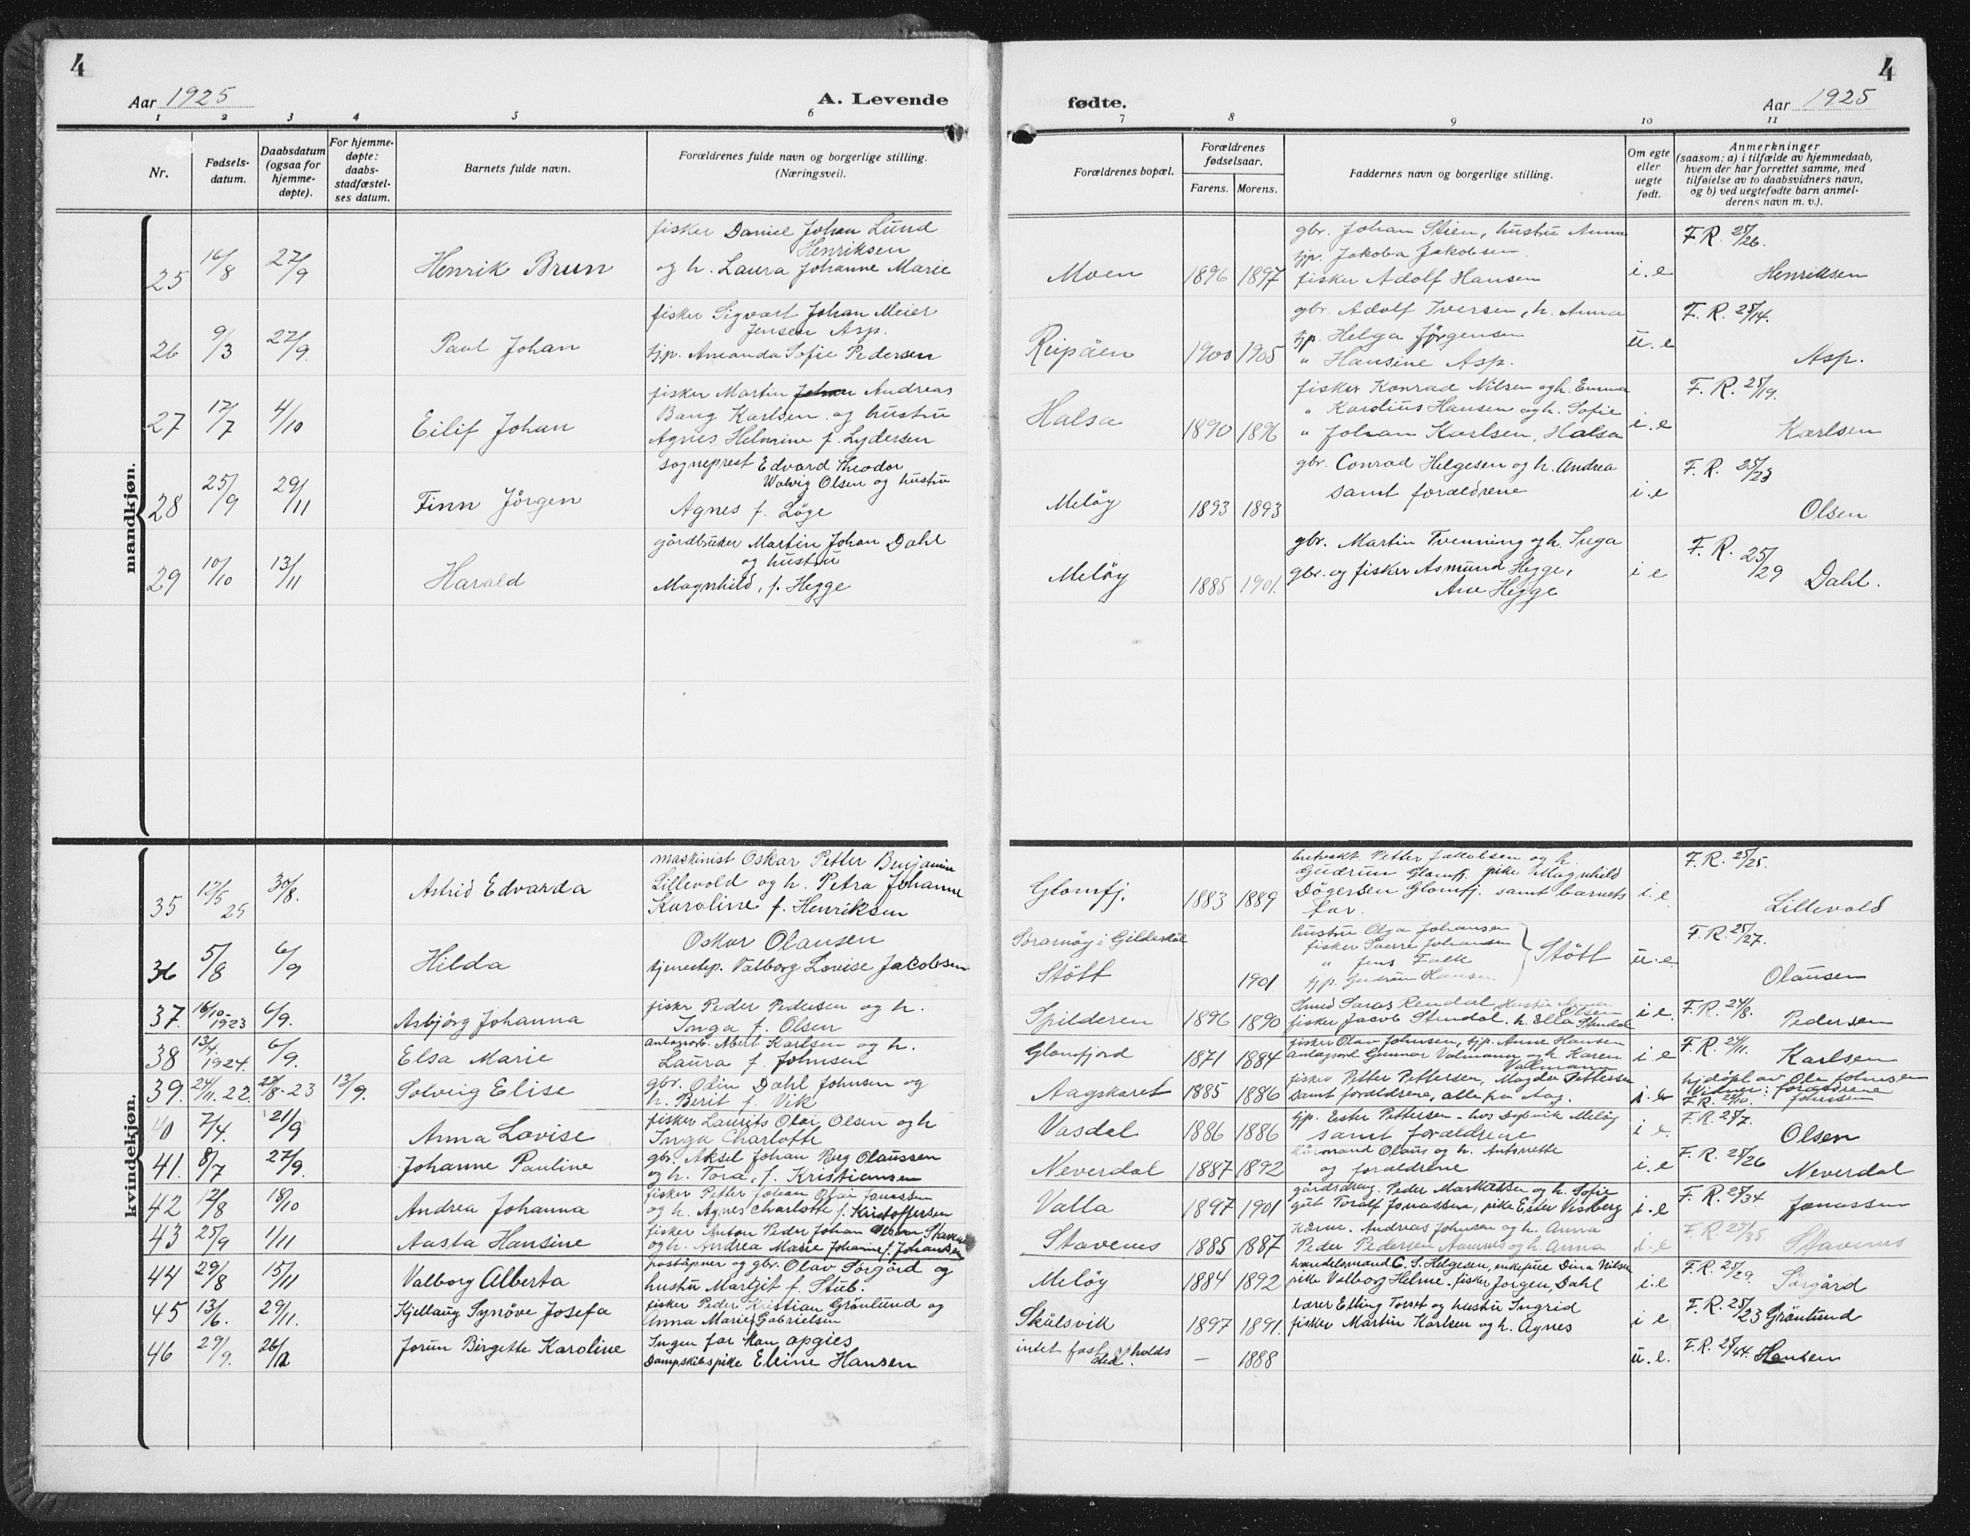 4
Aar 1925
A. Levende
1 2 3 4 5 6
Nr.
Fødsels-
datum.
Daabsdatum
(ogsaa for
hjemme-
døpte).
For hjemme-
døpte:
daabs-
stadfæstel-
ses datum.
Barnets fulde navn.
Forældrenes fulde navn og borgerlige stilling.
(Næringsvei).
mandkjøn.
fisker Daniel Johan Lund
Henriksen
25 16/8 27/9 Henrik Brun og h. Laura Johanne Marie
fisker Sigvart Johan Meier
Jensen Asp.
26 9/3 27/9 Paul Johan tjp. Amanda Sofie Pedersen
fisker Martin Johan Andreas
Bang Karlsen og hustru
27 17/7 4/10 Eilif Johan Agnes Helmine f. Lydersen
sogneprest Edvard Theodor
Walvig Olsen og hustru
28 25/9 29/11 Finn Jörgen Agnes f. Löge
gårdbruker Martin Johan Dahl
og hustru
29 10/10 13/11 Harald Magnhild, f. Hegge
kvindekjøn.
maskinist Oskar Petter Benjamin
Lillevold og h. Petra Johanne
35 12/5 25 30/8. Astrid Edvarda Karoline f. Henriksen
Oskar Olausen
36 5/8 6/9 Hilda tjenestep. Valborg Lovise Jacobsen
fisker Peder Pedersen og h.
37. 16/10-1923 6/9. Asbjörg Johanna Inga f. Olsen
Karlsen og h.
38 13/1 1924. 6/9. Elsa Marie Laura f. Johnsen
gbr. Odin Dahl Johnsen og
39. 24/11. 22. 29/8-23 13/9. Solveig Elise h. Berit f. Vik
fisker Laurits Olai Olsen og h
40 7/4. 21/9 Anna Lovise Inga Charlotte
gbr. Aksel Johan Berg Olaussen
41. 8/7 27/9. Johanne Pauline og h. Tora, f. Kristiansen
fisker Petter Johan Olai Jonassen
42 12/8 18/10 Andrea Johanna og h. Agnes Charlotte f. Kristoffersen
fisker Anton Peder Johan
43 25/9 1/11 Aasta Hansine og h. Andrea Marie Johanne f. Johansen
poståpner og gbr. Olav Sörgård og
44 29/8 15/11 Valborg Alberta hustru Margit f. Stub.
fisker Peder Kristian Grönlund og
45 13/6. 29/11. Kjellaug Synöve Josefa Anna Marie f. Gabrielsen
Ingen far kan opgies
46 29/9. 26/12 Jorun Birgitte Karoline Dampskibspike Eleine Hansen
4
fødte.
Aar 1925
7 8 9 10 11
Forældrenes bopæl.
Forældrenes
fødselsaar.
Farens. Morens.
Faddernes navn og borgerlige stilling.
Om egte
eller
uegte
født.
Anmerkninger
(saasom: a) i tilfælde av hjemmedaab,
hvem der har forrettet samme, med
tilføielse av to daabsvidners navn,
og b) ved uegtefødte barn anmel-
derens navn m. v.).
gbr. Johan Stien, hustru Anna F.R. 25/26.
tjp. Jakoba Jakobsen
Moen 1896 1897 fisker Adolf Hansen i. e Henriksen
gbr. Adolf Iversen, h. Anna F.R. 25/14.
tjp. Helga Jørgensen
Reipåen 1900 1905 " Hansine Asp. u. e Asp.
fisker Konrad Nilsen og h. Emma F.R. 25/19.
" Karolius Hansen og h. Sofie
Halsa 1890 1896 " Johan Karlsen, Halsa i. e Karlsen
gbr. Conrad Helgesen og h. Andrea F.R. 25/23
Melöy 1893 1893 samt forældrene i. e Olsen
gbr. Martin Tvenning og h. Inga F.R. 25/29
Melöy 1885 1901. gbr. og fisker Asmund Hegge, i e Dahl.
Ane Hegge
Petter Jakobsen og h. F.R. 25/25.
Gudrun Glomfj. pike Magnhild
Glomfj. 1883 1889 Dögersen Glomfj. samt barnets i. e.
far. Lillevold
Söramöy i Gildeskål hustru Olga Johansen F.R. 25/27.
fisker Sverre Johansen
" Jens Falk Stött u. e.
Stött 1901 tjp. Gudrun Hansen Olausen
Smed Rendal hustru Anna Olsen F.R. 24/8.
Spilderen 1896 1890 fisker Jacob Stendal. h. Ella Stendal i e. Pedersen
fisker Olav Johnsen, tjp. Anne Hansen F.R. 24/11.
Glomfjord 1871 1884 Gunnar Valmann og h. Karen i e Karlsen
Valmann
fisker Petter Pettersen, Magda Pettersen hj.döpt av Ole Johnsen
Aagskaret 1885 1886 samt forældrene, alle fra Aag. i. e Vitner: forældrene
Johnsen
tjp. Ester Pettersen - hos Melöy F.R. 25/7.
Vasdal 1886 1886 samt forældrene i e. Olsen
Olaus og h. Antonette F.R. 25/26
Neverdal 1887 1892 og forældrene i. e Neverdal
gårdsdreng. Peder Markussen og h. Sofie F.R. 25/34
Valla 1897 1901 gut Toralf Jonassen, pike Ester Visberg i. e Jonassen
Andreas Johnsen og h. Anna F.R. 25/35
Stavenes 1885 1887 Peder Pedersen og h. Anna i. e Stavenes
handelsmand C. S. Helgesen, enkefrue Dina Nilsen F.R. 25/29.
Melöy 1884 1892 pike Valborg Helme. fisker Jörgen, Dahl i. e Sörgård
lærer Elling Torset og hustru Ingrid F.R. 25/23
Skålsvik 1897 1891. fisker Martin Karlsen og h. Agnes i e Grönlund
intet fast opholds F.R. 25/44.
sted. — 1888 u. e. Hansen